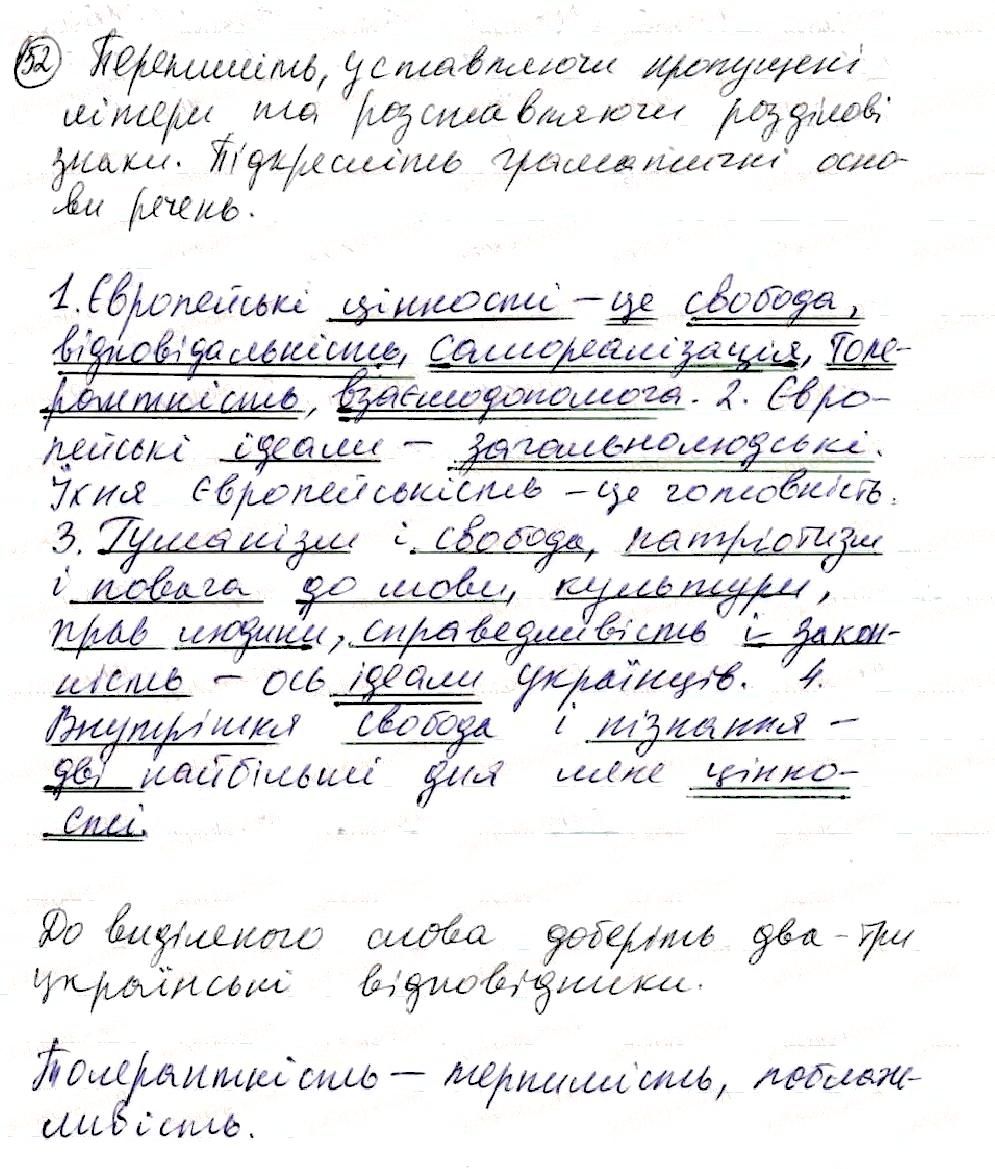 152 Перепишіть, уставляючи пропущені
літери та розставляючи розділові
знаки. Підкресліть граматичні осно-
ви речень.
1. Європейські цінності – це свобода,
відповідальність, самореалізація, толе-
рантність, взаємодопомога. 2. Євро-
пейські ідеали – загальнолюдські.
Їхня європейськість – це готовність.
3. Гуманізм і свобода, патріотизм
і повага до мови, культури,
прав людини, справедливість і закон-
ність – ось ідеали українців. 4.
Внутрішня свобода і пізнання –
дві найбільші для мене цінно-
сті.
До виділеного слова доберіть два-три
українські відповідники.
Толерантність – терпимість, поблаж-
ливість.